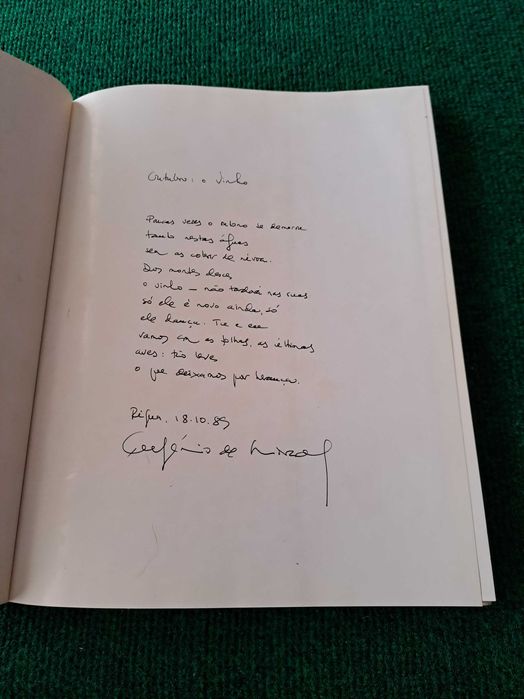 Outubro: o vinho
Poucas vezes o outono se demorou
tanto nestas águas
sem as cobrir de névoa.
Dos montes desce
o vinho — não tardará nas ruas
só ele é novo ainda, só
ele dança. Tu e eu
vamos com as folhas, as últimas
aves: tão leves
o que deixamos por herança.
18.10.89
Eugénio de